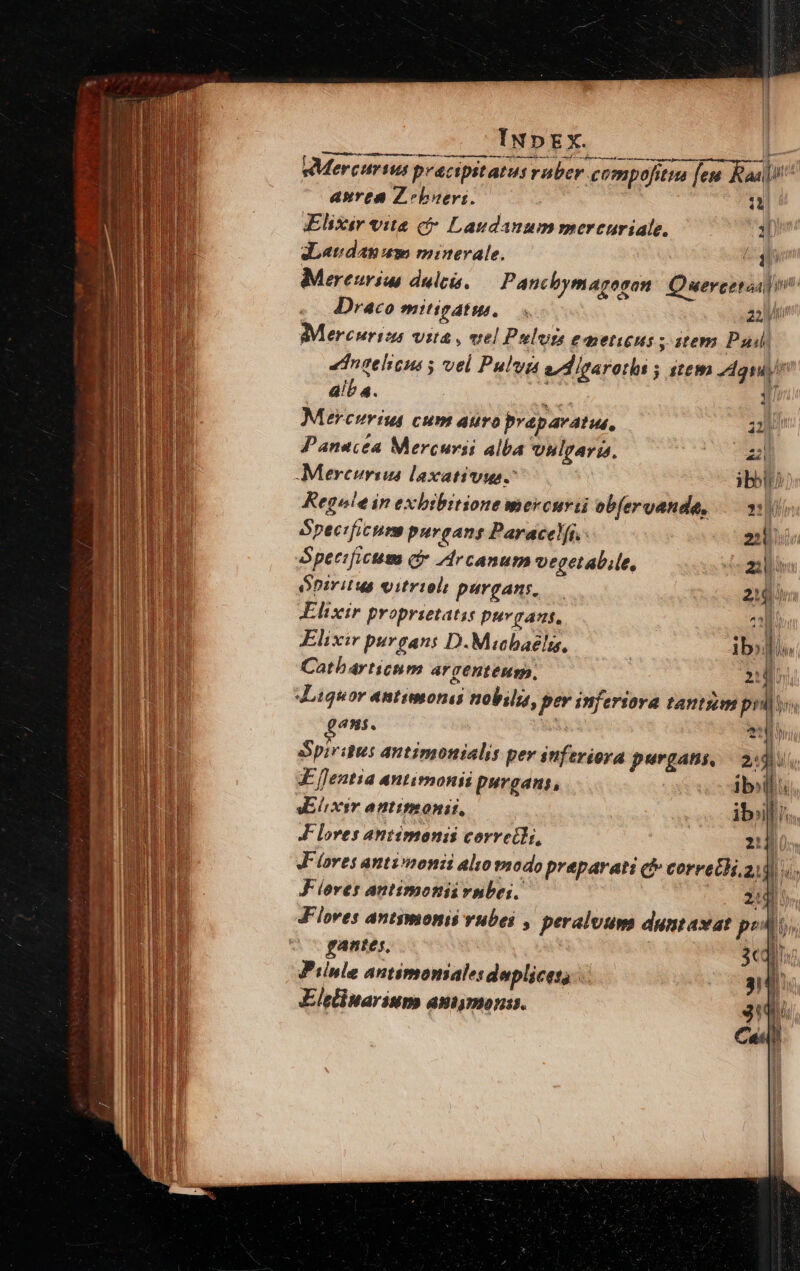 INDEX.
Mercurius præcipitatus ruber compositus seu
aurea Zebneri.
Elixir vitæ & Laudanum mercuriale.
Laudanum minerale.
Mercurius dulcis. Panchymagogon Quercetan
Draco mitigatus. 22
Mercurius vitæ, vel Pulvis emeticus; item Pul
Angelicus; vel Pulvis Algarothi; item Aqu
alba.
Mercurius cum auro præparatus.
Panacea Mercurii alba vulgaris.
Mercurius laxativus. ibi
Regulæ in exhibitione mercurii observandæ.
Specificum purgans Paracelsi.
Specificum & Arcanum vegetabile.
Spiritus vitrioli purgans.
Elixir proprietatis purgans.
Elixir purgans D. Michaëlis. ib
Catharticum argenteum.
Liquor antimonii nobilis, per inferiora tantùm pu
gans.
Spiritus antimonialis per inferiora purgans.
Essentia antimonii purgans. ib
Elixir antimonii. ib
Flores antimonii correcti.
Flores antimonii alio modo præparati & correcti.
Flores antimonii rubei.
Flores antimonii rubei, per alvum duntaxat pu
gantes.
Pilulæ antimoniales duplices.
Electuarium antimonii.